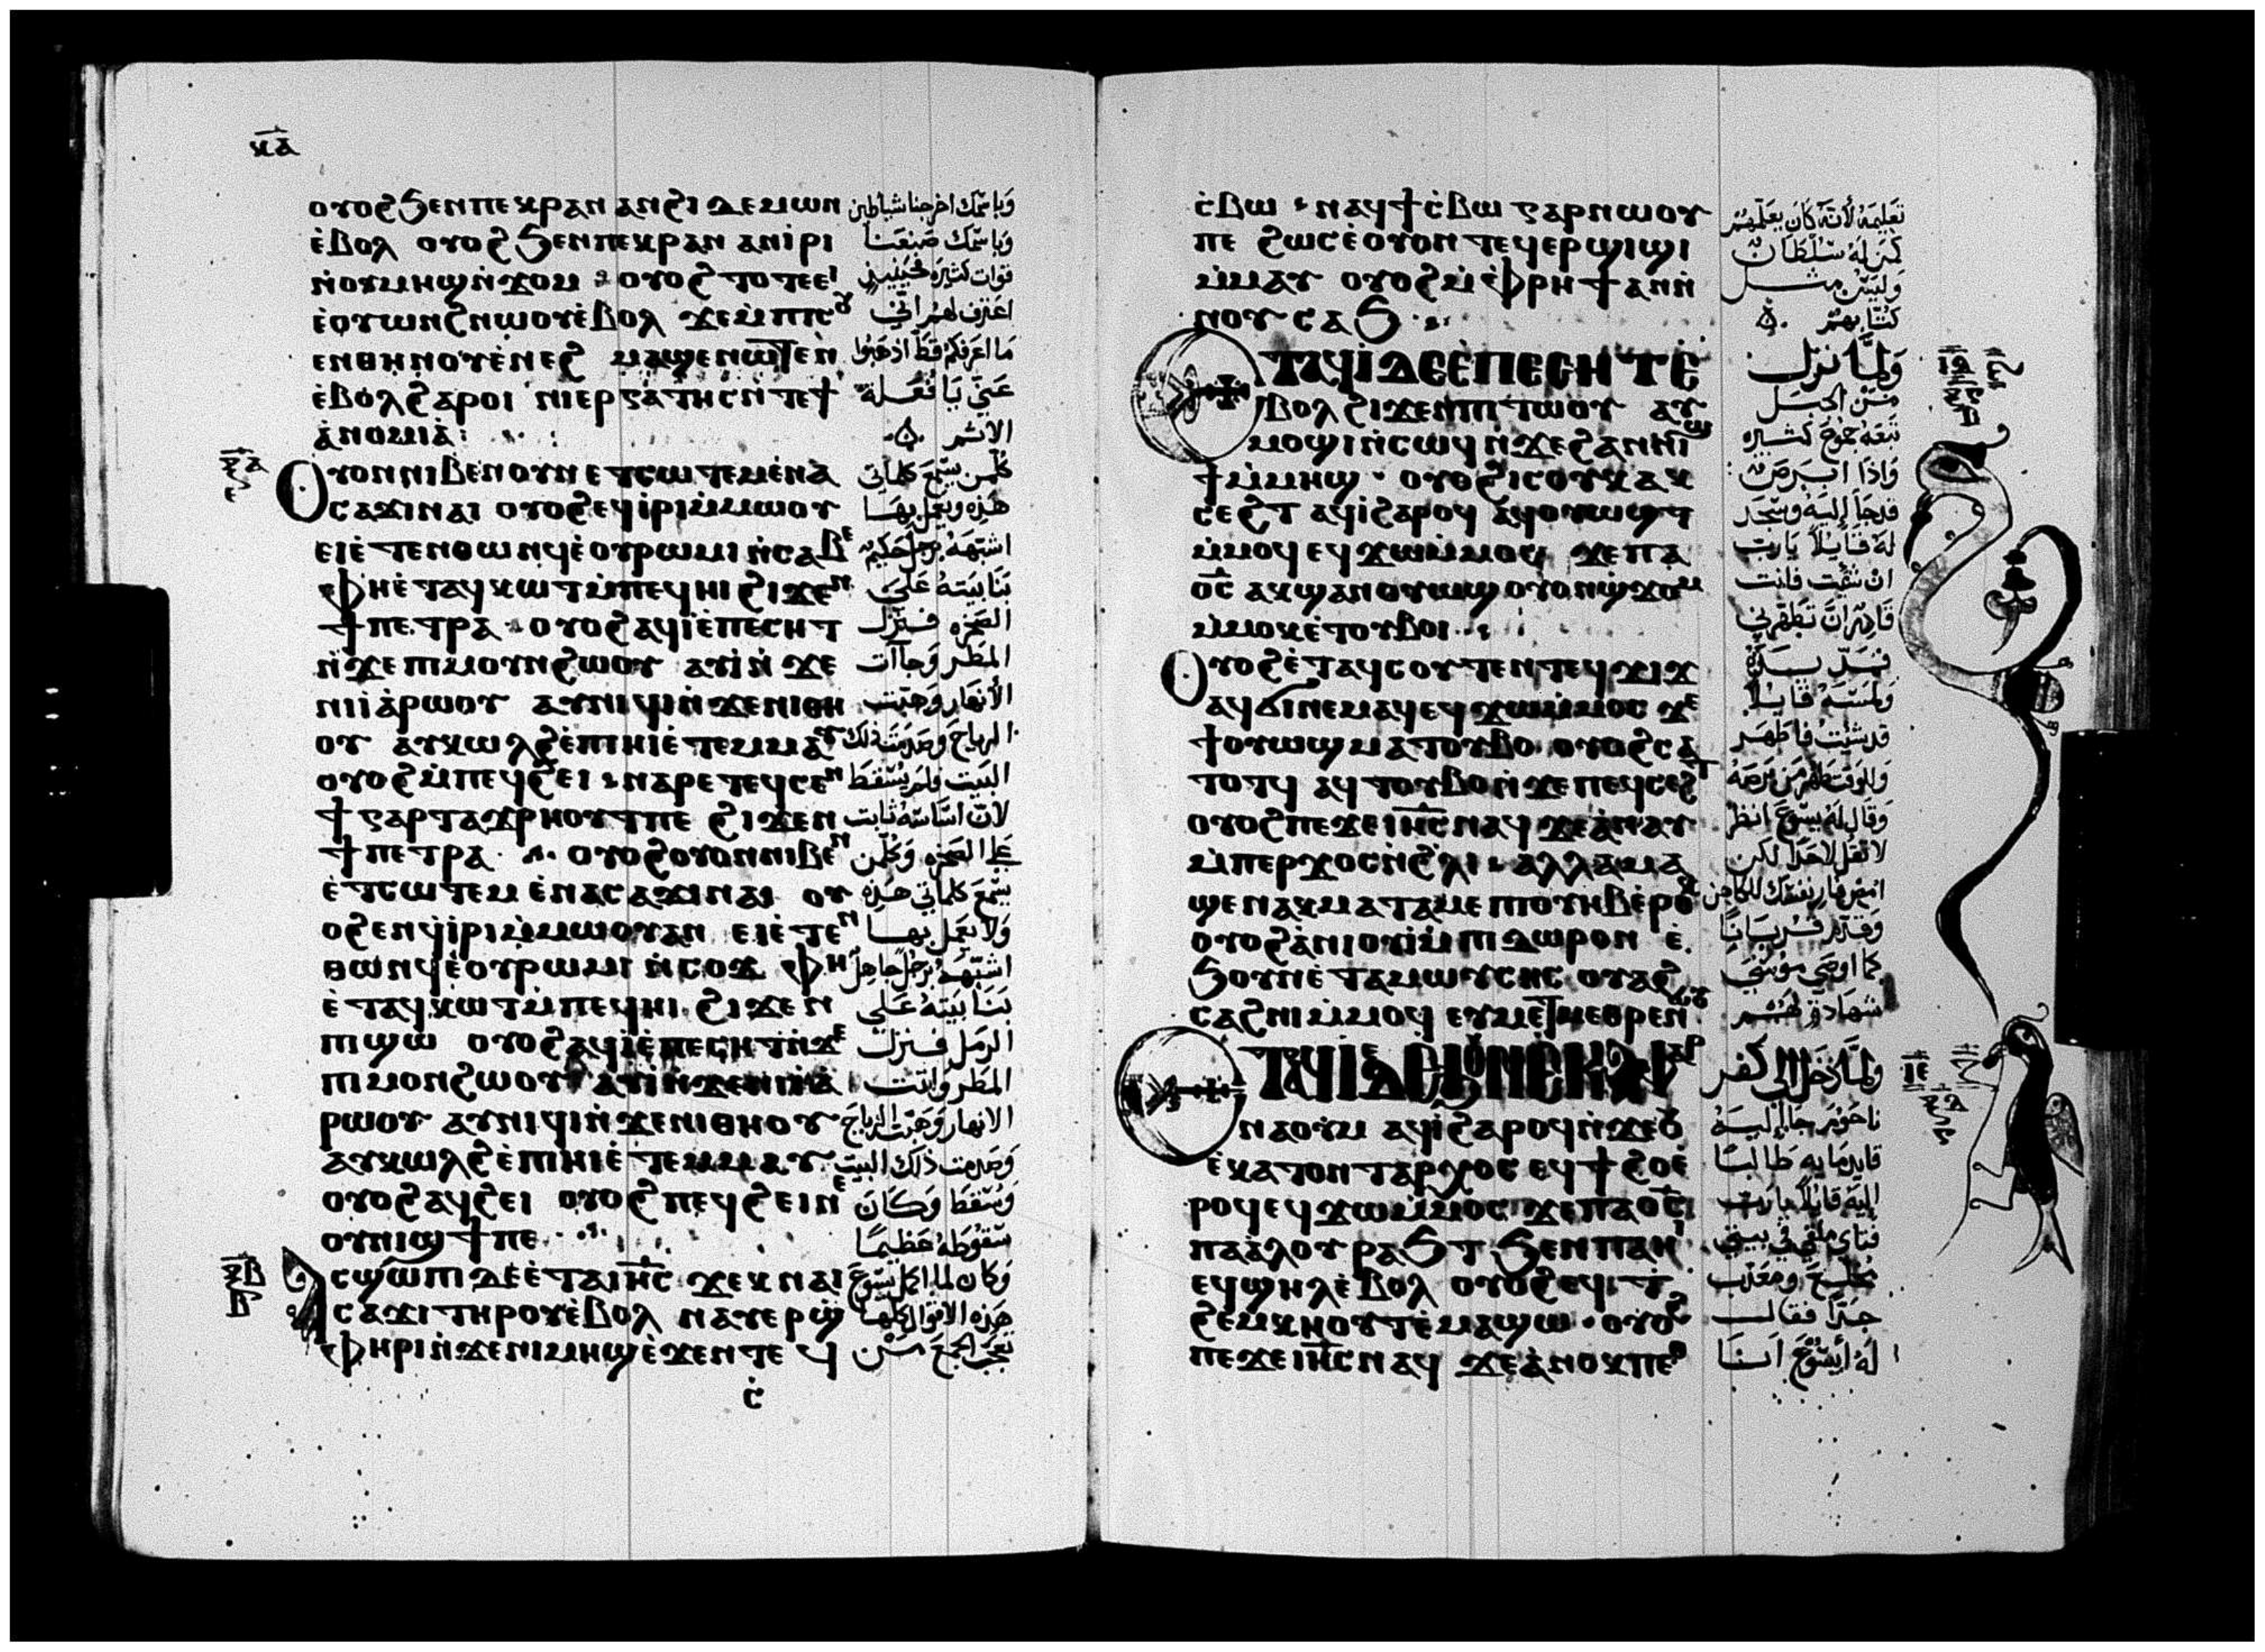 ⲕ̅ⲁ̅
ⲟⲩⲟϩ ϧⲉⲛ ⲡⲉⲕⲣⲁⲛ ⲁⲛϩⲓ ⲇⲉⲙⲱⲛ
ⲉ̀ⲃⲟⲗ ⲟⲩⲟϩ ϧⲉⲛ ⲡⲉⲕⲣⲁⲛ ⲁⲛⲓ̀ⲣⲓ
ⲛ̀ⲟⲩⲙⲏϣ ⲛ̀ϫⲟⲙ ⲟⲩⲟϩ ⲧⲟⲧⲉ ⲉⲓ
ⲉ̀ⲟⲩⲱⲛϩ ⲛⲱⲟⲩ ⲉ̀ⲃⲟⲗ ϫⲉ ⲙ̀ⲡⲓⲥⲟⲩ
ⲉⲛ ⲑⲏⲛⲟⲩ ⲉ̀ⲛⲉϩ ⲙⲁϣⲉⲛⲱⲧⲉⲛ
ⲉ̀ⲃⲟⲗ ϩⲁⲣⲟⲓ ⲛⲓⲉⲣⲅⲁⲧⲏⲥ ⲛ̀ⲧⲉ ϯ
ⲁ̀ⲛⲟⲙⲓⲁ̀
ⲟⲩⲟⲛ ⲛⲓⲃⲉⲛ ⲟⲩⲛ ⲉⲧⲥⲱⲧⲉⲙ ⲉ̀ⲛⲁ
ⲥⲁϫⲓ ⲛⲁⲓ ⲟⲩⲟϩ ⲉϥⲓ̀ⲣⲓ ⲙ̀ⲙⲱⲟⲩ
ⲉⲓⲉ̀ⲧⲉⲛⲑⲱⲛϥ ⲉ̀ⲟⲩⲣⲱⲙⲓ ⲛ̀ⲥⲁⲃⲉ
ⲫⲏ ⲉ̀ⲧⲁϥⲕⲱⲧ ⲙ̀ⲡⲉϥⲏⲓ ϩⲓϫⲉⲛ
ϯⲡⲉⲧⲣⲁ ⲟⲩⲟϩ ⲁϥⲓ̀ ⲉ̀ⲡⲉⲥⲏⲧ
ⲛ̀ϫⲉ ⲡⲓⲙⲟⲩⲛϩⲱⲟⲩ ⲁⲩⲓ̀ ⲛ̀ϫⲉ
ⲛⲓⲓⲁ̀ⲣⲱⲟⲩ ⲁⲩⲛⲓϥⲓ ⲛ̀ϫⲉ ⲛⲓⲑⲏ
ⲟⲩ ⲁⲩⲕⲱⲗϩ ⲉ̀ⲡⲓⲏⲓ ⲉ̀ⲧⲉⲙⲙⲁⲩ
ⲟⲩⲟϩ ⲙ̀ⲡⲉϥϩⲉⲓ ⲛⲁⲣⲉ ⲧⲉϥⲥⲉⲛ
ϯ ⲅⲁⲣ ⲧⲁϫⲣⲏⲟⲩⲧ ⲡⲉ ϩⲓϫⲉⲛ
ϯⲡⲉⲧⲣⲁ ⲟⲩⲟϩ ⲟⲩⲟⲛ ⲛⲓⲃⲉⲛ
ⲉ̀ⲧⲥⲱⲧⲉⲙ ⲉ̀ⲛⲁⲥⲁϫⲓ ⲛⲁⲓ ⲟⲩ
ⲟϩ ⲉⲛϥⲓ̀ⲣⲓ ⲙ̀ⲙⲱⲟⲩ ⲁⲛ ⲉⲓⲉ̀ⲧⲉⲛ
ⲑⲱⲛϥ ⲉ̀ⲟⲩⲣⲱⲙⲓ ⲛ̀ⲥⲟϫ ⲫⲏ
ⲉ̀ⲧⲁϥⲕⲱⲧ ⲙ̀ⲡⲉϥⲏⲓ ϩⲓϫⲉⲛ
ⲡⲓϣⲱ ⲟⲩⲟϩ ⲁϥⲓ̀ ⲉ̀ⲡⲉⲥⲏⲧ ⲛ̀ϫⲉ
ⲡⲓⲙⲟⲩⲛϩⲱⲟⲩ ⲁⲩⲓ̀ ⲛ̀ϫⲉ ⲛⲓⲓⲁ̀
ⲣⲱⲟⲩ ⲁⲩⲛⲓϥⲓ ⲛ̀ϫⲉ ⲛⲓⲑⲏⲟⲩ
ⲁⲩⲕⲱⲗϩ ⲉ̀ⲡⲓⲏⲓ ⲉ̀ⲧⲉⲙⲙⲁⲩ
ⲟⲩⲟϩ ⲁϥϩⲉⲓ ⲟⲩⲟϩ ⲡⲉϥϩⲉⲓ ⲛⲉ
ⲟⲩⲛⲓϣϯ ⲡⲉ
ⲁⲥϣⲱⲡⲓ ⲇⲉ ⲉ̀ⲧⲁ ⲓⲏ̅ⲥ̅ ϫⲉⲕ ⲛⲁⲓ
ⲥⲁϫⲓ ⲧⲏⲣⲟⲩ ⲉ̀ⲃⲟⲗ ⲛⲁⲩⲉⲣϣ
ⲫⲏⲣⲓ ⲛ̀ϫⲉ ⲛⲓⲙⲏϣ ⲉ̀ϫⲉⲛ ⲧⲉϥ
ⲥ̀
وباسمك اخرجنا شياطين
وباسمك صنعنا
قوات كثيرة فحينيذ
اعترف لهم اني
ما اعرفكم قط اذهبوا
عني يا فعلة
الاثم
كلمن يسمع كلماتي
هذه ويعمل بها
اشبهه برجل حكيم
بنا بيته على
الصخره فنزل
المطر وجاات
الانهار وهبت
الرياح وصدمت ذلك
البيت ولم يسقط
لان اساسه ثابت
على الصخره وكلمن
يسمع كلماتي هذه
ولا يعمل بها
اشبهه برجل جاهل
بنا بيته على
الرمل فنزل
المطر واتت
الانهار وهبت الرياح
وصدمت ذلك البيت
وسقط وكان
سقوطه عظيما
وكان لما اكمل يسوع
هذه الاقوال كلها
تعجب الجمع من
ⲥ̀ⲃⲱ ⲛⲁϥϯⲥ̀ⲃⲱ ⲅⲁⲣ ⲛⲱⲟⲩ
ⲡⲉ ϩⲱⲥ ⲉ̀ⲟⲩⲟⲛⲧⲉϥ ⲉⲣϣⲓϣⲓ
ⲙ̀ⲙⲁⲩ ⲟⲩⲟϩ ⲙ̀ⲫⲣⲏϯ ⲁⲛ ⲛ̀
ⲛⲟⲩⲥⲁϧ
ⲉⲧⲁϥⲓ̀ ⲇⲉ ⲉ̀ⲡⲉⲥⲏⲧ ⲉ̀
ⲃⲟⲗ ϩⲓϫⲉⲛ ⲡⲓⲧⲱⲟⲩ ⲁⲩ
ⲙⲟϣⲓ ⲛ̀ⲥⲱϥ ⲛ̀ϫⲉ ϩⲁⲛⲛⲓϣ
ϯ ⲙ̀ⲙⲏϣ ⲟⲩⲟϩ ⲓⲥ ⲟⲩⲕⲁⲕ
ⲥⲉϩⲧ ⲁϥⲓ̀ ϩⲁⲣⲟϥ ⲁϥⲟⲩⲱϣⲧ
ⲙ̀ⲙⲟϥ ⲉϥϫⲱ ⲙ̀ⲙⲟⲥ ϫⲉ ⲡⲁ
ⲟ̅ⲥ̅ ⲁⲕϣⲁⲛⲟⲩⲱϣ ⲟⲩⲟⲛϣϫⲟⲙ
ⲙ̀ⲙⲟⲕ ⲉ̀ⲧⲟⲩⲃⲟⲓ
ⲟⲩⲟϩ ⲉ̀ⲧⲁϥⲥⲟⲩⲧⲉⲛ ⲧⲉϥϫⲓϫ
ⲁϥϭⲓ ⲛⲉⲙⲁϥ ⲉϥϫⲱ ⲙ̀ⲙⲟⲥ ϫⲉ
ϯⲟⲩⲱϣ ⲙⲁⲧⲟⲩⲃⲟ ⲟⲩⲟϩ ⲥⲁ
ⲧⲟⲧϥ ⲁϥⲧⲟⲩⲃⲟ ⲛ̀ϫⲉ ⲡⲉϥⲥⲉϩⲧ
ⲟⲩⲟϩ ⲡⲉϫⲉ ⲓⲏ̅ⲥ̅ ⲛⲁϥ ϫⲉ ⲁ̀ⲛⲁⲩ
ⲙ̀ⲡⲉⲣϫⲟⲥ ⲛ̀ϩⲗⲓ ⲁⲗⲗⲁ ⲙⲁ
ϣⲉⲛⲁⲕ ⲙⲁⲧⲁⲙⲉ ⲡⲓⲟⲩⲏⲃ ⲉ̀ⲣⲟⲕ
ⲟⲩⲟϩ ⲁ̀ⲛⲓⲟⲩⲓ̀ ⲙ̀ⲡⲓⲇⲱⲣⲟⲛ ⲉ̀
ϧⲟⲩⲛ ⲉ̀ⲧⲁ ⲙⲱⲩⲥⲏⲥ ⲟⲩⲁϩ
ⲥⲁϩⲛⲓ ⲙ̀ⲙⲟϥ ⲉⲩⲙⲉⲧⲙⲉⲑⲣⲉ ⲛⲱⲟⲩ
ⲉⲧⲁϥⲓ̀ ⲇⲉ ⲉ̀ϧⲟⲩⲛ ⲉ̀ⲕⲁⲫⲁⲣ
ⲛⲁⲟⲩⲙ ⲁϥⲓ̀ ϩⲁⲣⲟϥ ⲛ̀ϫⲉ ⲟⲩ
ⲉ̀ⲕⲁⲧⲟⲛⲧⲁⲣⲭⲟⲥ ⲉϥϯϩⲟ ⲉ̀
ⲣⲟϥ ⲉϥϫⲱ ⲙ̀ⲙⲟⲥ ϫⲉ ⲡⲁⲟ̅ⲥ̅
ⲡⲁⲁ̀ⲗⲟⲩ ⲣⲁϧⲧ ϧⲉⲛ ⲡⲁⲏⲓ
ⲉϥϣⲏⲗ ⲉ̀ⲃⲟⲗ ⲟⲩⲟϩ ⲉϥⲓ ⲧ
ϩⲉⲙⲕⲏⲟⲩⲧ ⲉ̀ⲙⲁϣⲱ ⲟⲩⲟϩ
ⲡⲉϫⲉ ⲓⲏ̅ⲥ̅ ⲛⲁϥ ϫⲉ ⲁ̀ⲛⲟⲕ ⲡⲉⲑ
تعليمه لانه كان يعلمهم
كمن له سلطان
وليس مثل
كتابهم
ولما نزل
من الجبل
تبعه جموع كثيره
واذا ابرص
قد جا اليه وسجد
له قايلا يارب
ان شئت فانت
قادر ان تطهرني
فمد يده
ولمسه قايلا
قد شيت فاطهر
وللوقت طهر من برصه
وقال له يسوع انظر
لا تقل لاحد لكن
امض فار نفسك للكاهن
وقدم قربانا
كما اوصى موسى
شهادة لهم
ولما دخل الى كفر
ناحوم جا اليه
قايد مايه طالبا
اليه قايلا يارب
فتاي ملقى في بيتي
مخلع ومعذب
جدا فقال
له يسوع انا